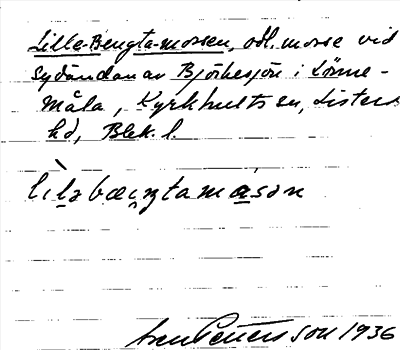 Lilla-Bengta-mossen, odl. mosse vid
Sydändan av Björkesjön i Lönne-
måla, Kyrkhults sn, Listers
hd, Blek. l.
lìlabæŋtamåsən
Sven Petersson 1936